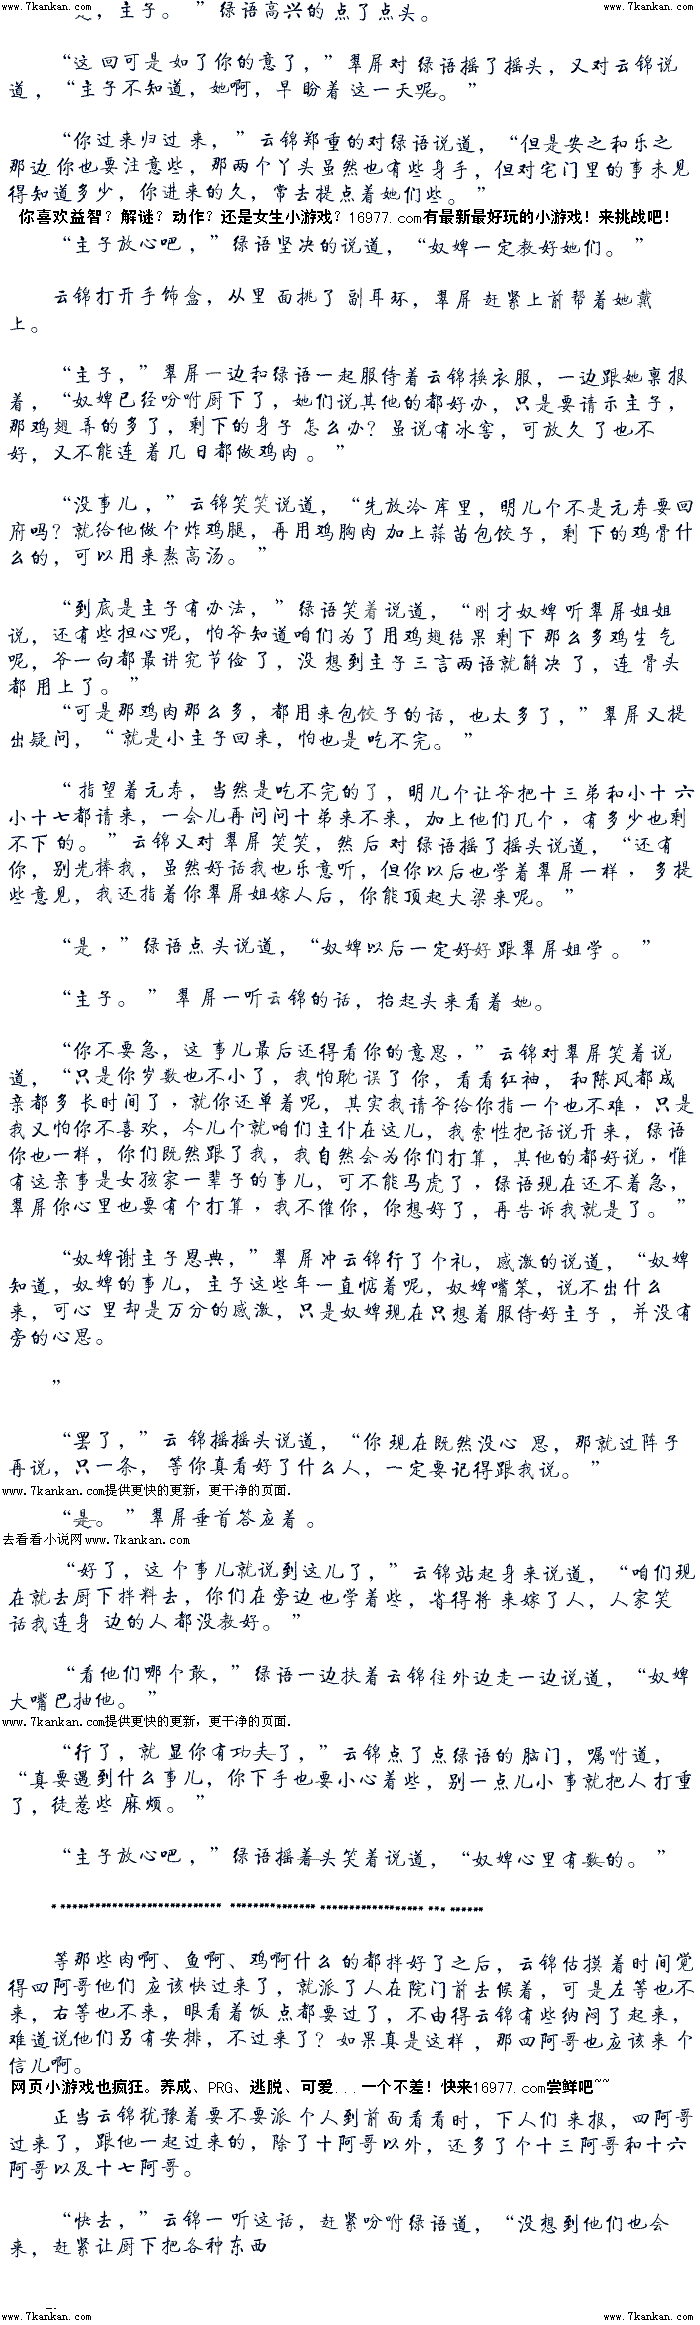 www.7kankan.com www.7kankan.com
，主子。”绿语高兴的点了点头。
“这回可是如了你的意了，”翠屏对绿语摇了摇头，又对云锦说
道，“主子不知道，她啊，早盼着这一天呢。”
“你过来归过来，”云锦郑重的对绿语说道，“但是安之和乐之
那边你也要注意些，那两个丫头虽然也有些身手，但对宅门里的事未见
得知道多少，你进来的久，常去提点着她们些。”
你喜欢益智？解谜？动作？还是女生小游戏？16977.com有最新最好玩的小游戏！来挑战吧！
“主子放心吧，”绿语坚决的说道，“奴婢一定教好她们。”
云锦打开手饰盒，从里面挑了副耳环，翠屏赶紧上前帮着她戴
上。
“主子，”翠屏一边和绿语一起服侍着云锦换衣服，一边跟她禀报
着，“奴婢已经吩咐厨下了，她们说其他的都好办，只是要请示主子，
那鸡翅弄的多了，剩下的身子怎么办？虽说有冰窖，可放久了也不
好，又不能连着几日都做鸡肉。”
“没事儿，”云锦笑笑说道，“先放冷库里，明儿个不是元寿要回
府吗？就给他做个炸鸡腿，再用鸡胸肉加上蒜苗包饺子，剩下的鸡骨什
么的，可以用来熬高汤。”
“到底是主子有办法，”绿语笑着说道，“刚才奴婢听翠屏姐姐
说，还有些担心呢，怕爷知道咱们为了用鸡翅结果剩下那么多鸡生气
呢，爷一向都最讲究节俭了，没想到主子三言两语就解决了，连骨头
都用上了。”
“可是那鸡肉那么多，都用来包饺子的话，也太多了，”翠屏又提
出疑问，“就是小主子回来，怕也是吃不完。”
“指望着元寿，当然是吃不完的了，明儿个让爷把十三弟和小十六
小十七都请来，一会儿再问问十弟来不来，加上他们几个，有多少也剩
不下的。”云锦又对翠屏笑笑，然后对绿语摇了摇头说道，“还有
你，别光捧我，虽然好话我也乐意听，但你以后也学着翠屏一样，多提
些意见，我还指着你翠屏姐嫁人后，你能顶起大梁来呢。”
“是，”绿语点头说道，“奴婢以后一定好好跟翠屏姐学。”
“主子。”翠屏一听云锦的话，抬起头来看着她。
“你不要急，这事儿最后还得看你的意思，”云锦对翠屏笑着说
道，“只是你岁数也不小了，我怕耽误了你，看看红袖，和陈风都成
亲都多长时间了，就你还单着呢，其实我请爷给你指一个也不难，只是
我又怕你不喜欢，今儿个就咱们主仆在这儿，我索性把话说开来，绿语
你也一样，你们既然跟了我，我自然会为你们打算，其他的都好说，惟
有这亲事是女孩家一辈子的事儿，可不能马虎了，绿语现在还不着急，
翠屏你心里也要有个打算，我不催你，你想好了，再告诉我就是了。”
“奴婢谢主子恩典，”翠屏冲云锦行了个礼，感激的说道，“奴婢
知道，奴婢的事儿，主子这些年一直惦着呢，奴婢嘴笨，说不出什么
来，可心里却是万分的感激，只是奴婢现在只想着服侍好主子，并没有
旁的心思。
”
“罢了，”云锦摇摇头说道，“你现在既然没心思，那就过阵子
再说，只一条，等你真看好了什么人，一定要记得跟我说。”
www.7kankan.com提供更快的更新，更干净的页面.
“是。”翠屏垂首答应着。
去看看小说网www.7kankan.com
“好了，这个事儿就说到这儿了，”云锦站起身来说道，“咱们现
在就去厨下拌料去，你们在旁边也学着些，省得将来嫁了人，人家笑
话我连身边的人都没教好。”
“看他们哪个敢，”绿语一边扶着云锦往外边走一边说道，“奴婢
大嘴巴抽他。”
www.7kankan.com提供更快的更新，更干净的页面.
“行了，就显你有功夫了，”云锦点了点绿语的脑门，嘱咐道，
“真要遇到什么事儿，你下手也要小心着些，别一点儿小事就把人打重
了，徒惹些麻烦。”
“主子放心吧，”绿语摇着头笑着说道，“奴婢心里有数的。”
****************************  *************** ****************** *** ******
等那些肉啊、鱼啊、鸡啊什么的都拌好了之后，云锦估摸着时间觉
得四阿哥他们应该快过来了，就派了人在院门前去候着，可是左等也不
来，右等也不来，眼看着饭点都要过了，不由得云锦有些纳闷了起来，
难道说他们另有安排，不过来了？如果真是这样，那四阿哥也应该来个
信儿啊。
网页小游戏也疯狂。养成、PRG、逃脱、可爱...一个不差！快来16977.com尝鲜吧~~
正当云锦犹豫着要不要派个人到前面看看时，下人们来报，四阿哥
过来了，跟他一起过来的，除了十阿哥以外，还多了个十三阿哥和十六
阿哥以及十七阿哥。
“快去，”云锦一听这话，赶紧吩咐绿语道，“没想到他们也会
来，赶紧让厨下把各种东西
www.7kankan.com www.7kankan.com